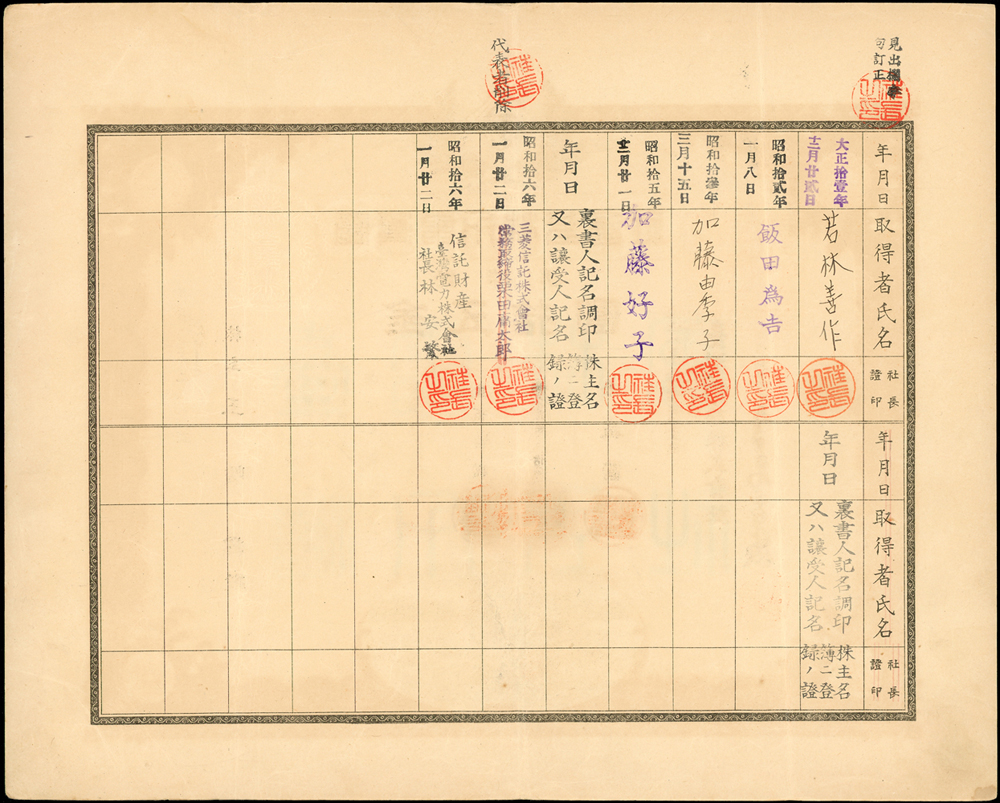 見出欄壹
句訂正
代表者削除
年月日
取得者氏名
社長
證印
大正拾壹年
十二月廿貳日
若林善作
昭和拾貳年
一月八日
飯田為吉
昭和拾參年
三月十五日
加藤由季子
昭和拾五年
十二月廿一日
加藤好子
年月日
裏書人記名調印
又ハ讓受人記名
株主名
簿ニ登
録ノ證
昭和拾六年
一月廿二日
三菱信託株式會社
昭和拾六年
一月廿二日
信託財産
臺灣電力株式會社
社長林安繁
年月日
取得者氏名
社長
證印
年月日
裏書人記名調印
又ハ讓受人記名
株主名
簿ニ登
録ノ證